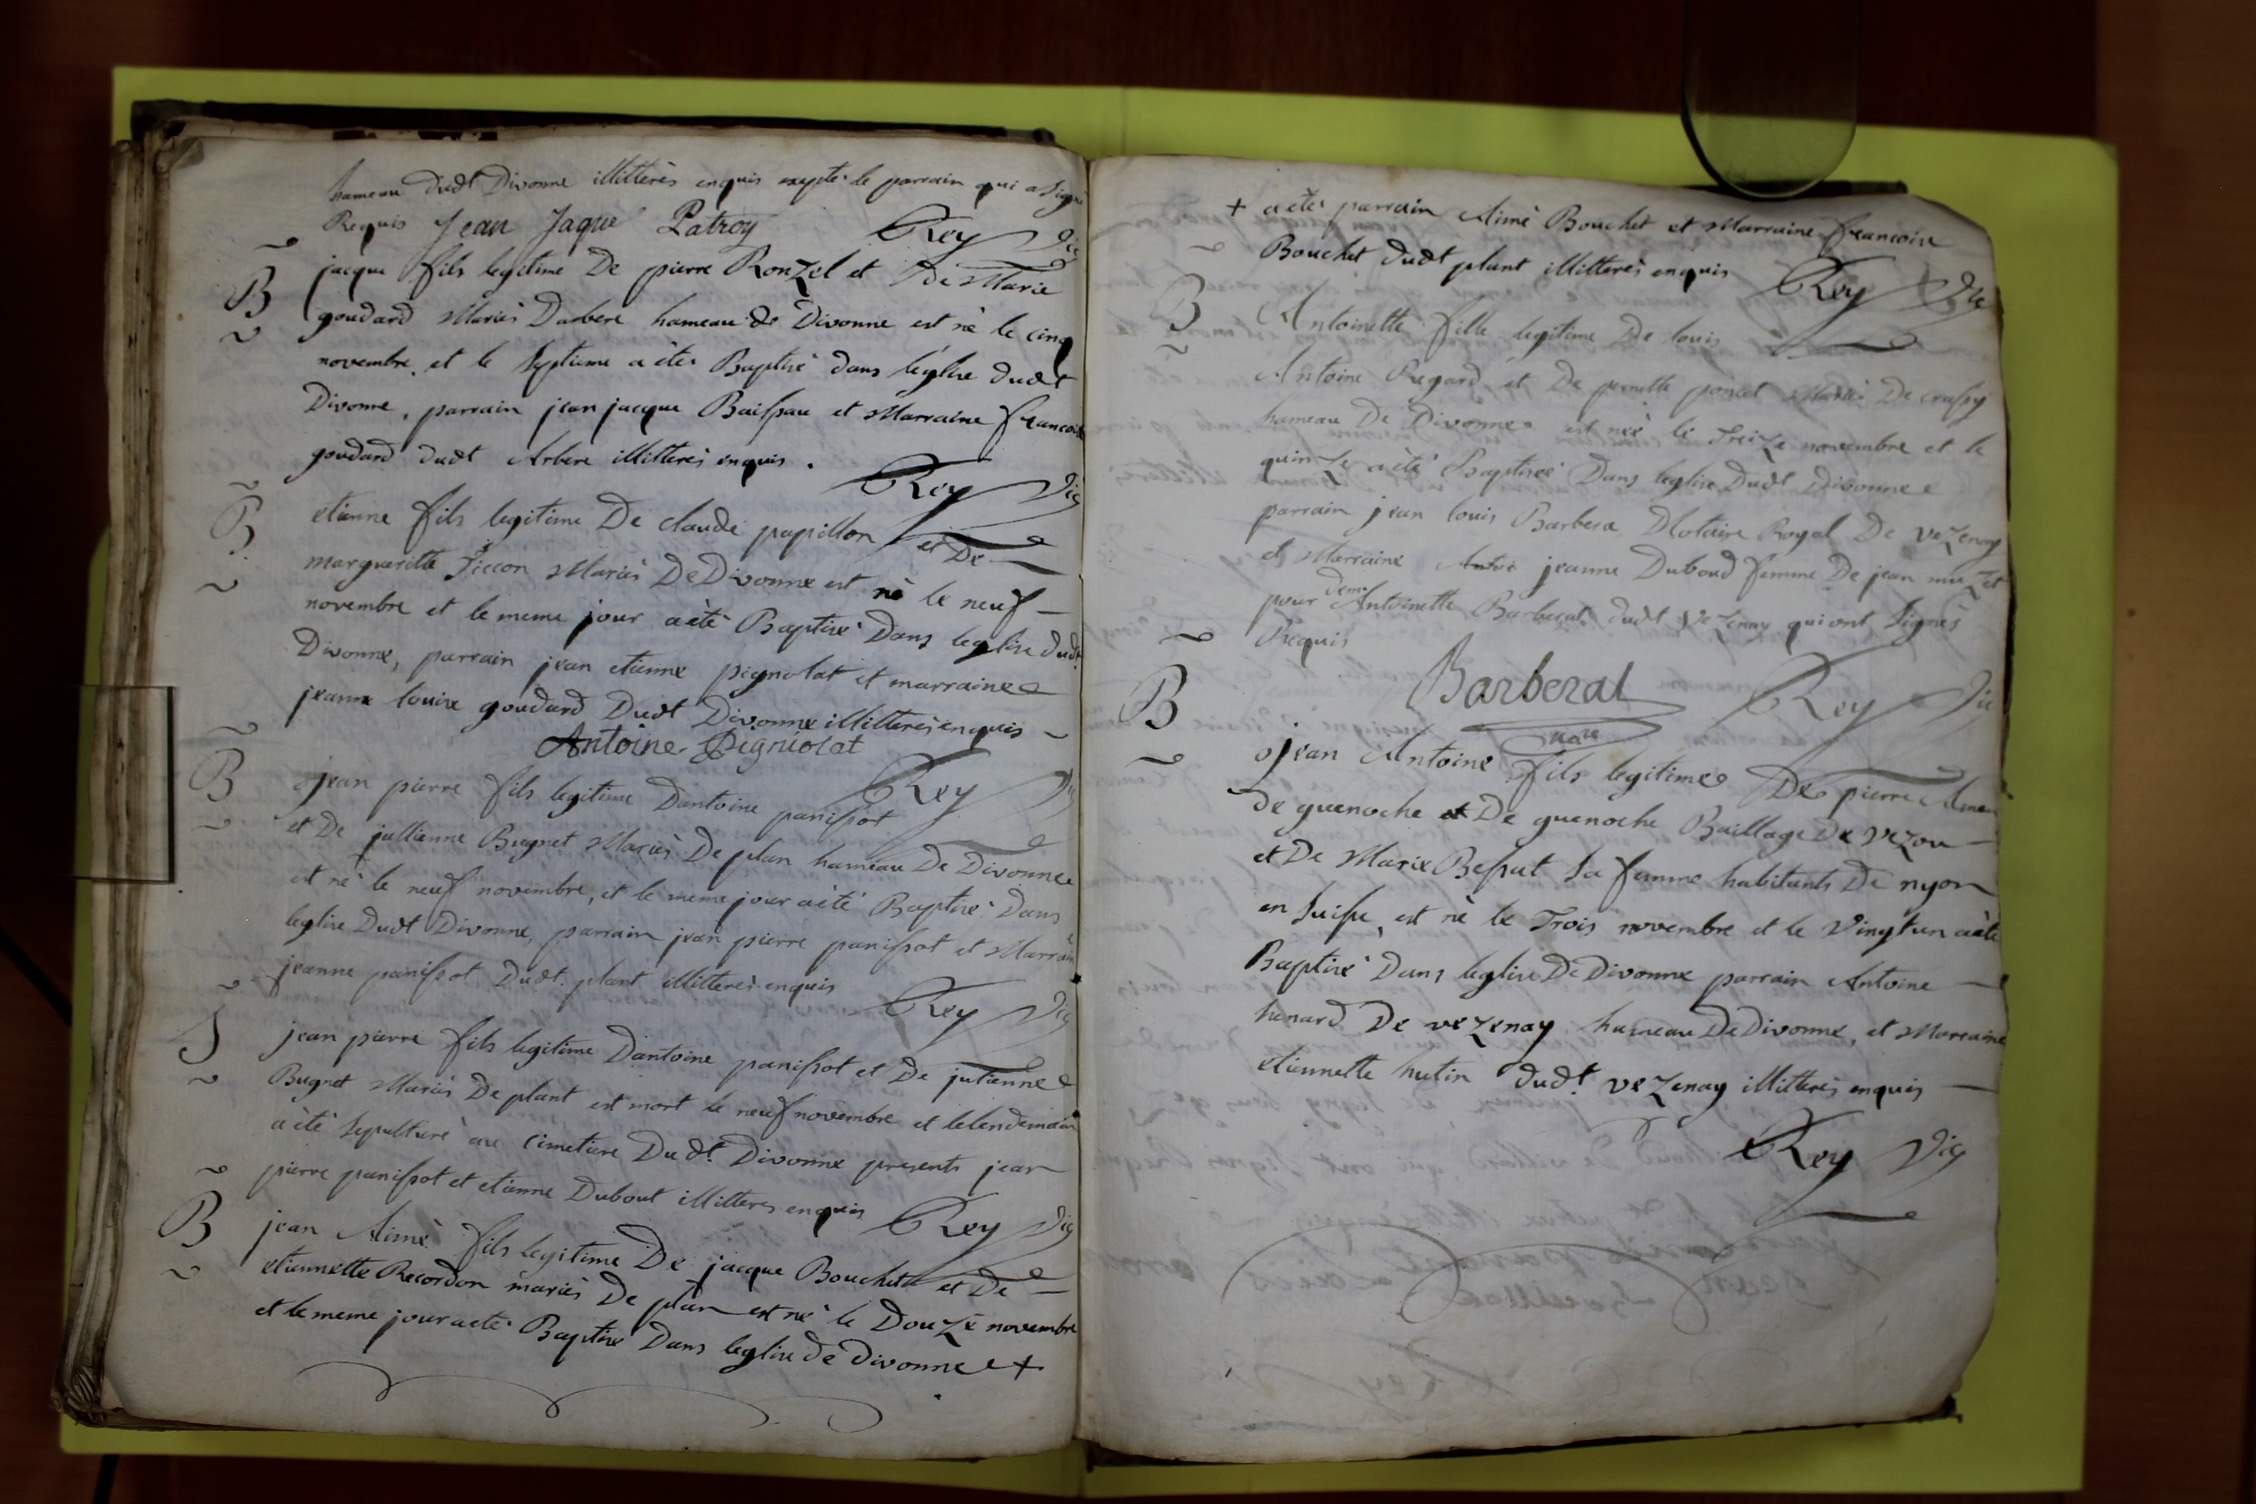 hameau dudt Divonne illitterés enquis exepté le parrain qui a signé
Requis Jean Jaque Patroy Rey Vic
B
jacque fils legitime De pierre Ronzel et De Marie
goudard Mariés Darbere hameau de Divonne est né le cinq
novembre et le septieme a été Baptisé dans leglise dudt
Divonne, parrain jean jacque Baissau et Marraine francoise
goudard dudt Arbere illitterés enquis. Rey Vic
B
etienne fils legitime De claude papillon et De
margueritte Mariés De Divonne est né le neuf
novembre et le meme jour a été Baptisé Dans leglise dudt
Divonne, parrain jean etienne pignolat et marraine
jeanne louise goudard Dudt Divonne illitterés enquis
Antoine Pigniolat Rey Vic
B
jean pierre fils legitime Dantoine panissot
et De jullienne Bugnet Mariés De plan hameau De Divonne
est né le neuf novembre, et le meme jour a été Baptisé Dans
leglise Dudt Divonne, parrain jean pierre panissot et Marraine
jeanne panissot Dudt. plant illitterés enquis Rey Vic
S
jean pierre fils legitime Dantoine panissot et De julienne
Bugnet Mariés De plant est mort le neuf novembre et lelendemain
a été sepulturé au cimetiere Dudt. Divonne presents jean
pierre panissot et etienne Dubout illitteres enquis Rey Vic
B
jean Aimé fils legitime De jacque Bouchet et De
etiennette Recordon mariés De plan est né le Douze novembre
et le meme jour a été Baptisé Dans leglise de Divonne +
+ a été parrain Aimé Bouchet et Marraine francoise
Bouchet dudt plant illitterés enquis Rey Vic
B
Antoinette fille legitime De louis
Antoine Regard et De pernette poncet Mariés De crassy
hameau De Divonne est née le Treize novembre et le
quinze a été Baptisée Dans leglise Dudt Divonne
parrain jean louis Barbera Notaire Royal De veZenay
et Marraine jeanne Duboud femme De jean muzet
pour deme Antoinette Barberat dudt veZenay qui ont signés
Requis Barberat Rey Vic
nore
B
jean Antoine fils legitime De pierre
de guenoche et De guenoche Baillage De veZou
et De Marie Bessut sa femme habitants De nyon
en suisse, est né le Trois novembre et le vingtun a été
Baptisé Dans leglise De Divonne parrain Antoine
henard De veZenay hameau De Divonne, et Marraine
etiennette hutin dudt. veZenay illitterés enquis
Rey Vic